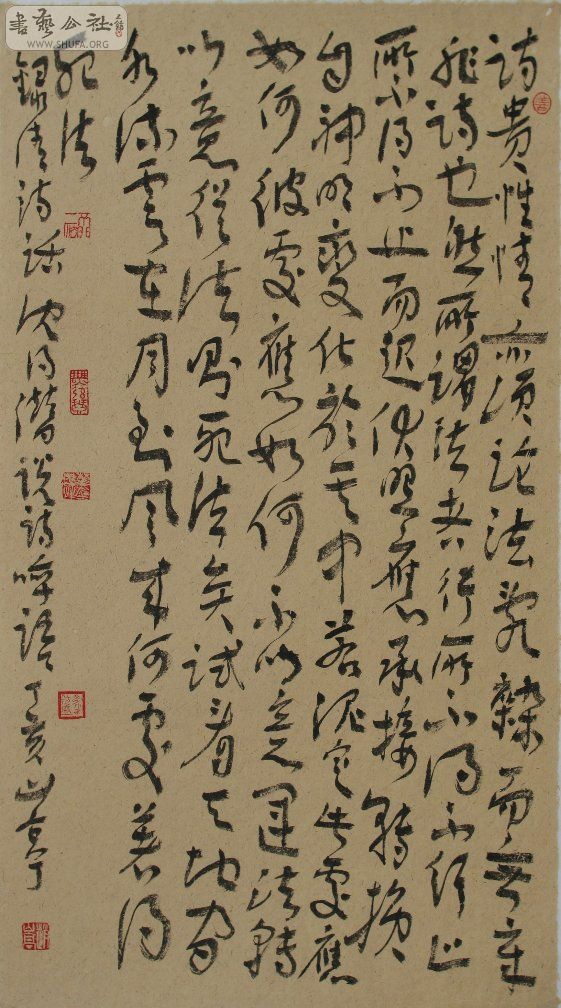 書藝公社
WWW.SHUFA.ORG
詩貴性情亦須論法亂雜而無章
非詩也然所謂法者行所不得不行止
所不得不止而起伏照應承接轉換
自神明變化於其中若泥定此處應
如何彼處應如何不以意運法轉
以意從法則死法矣試看天地間
水流雲在月到風來何處著得
死法
錄清詩話沈得潛說詩晬語丁亥